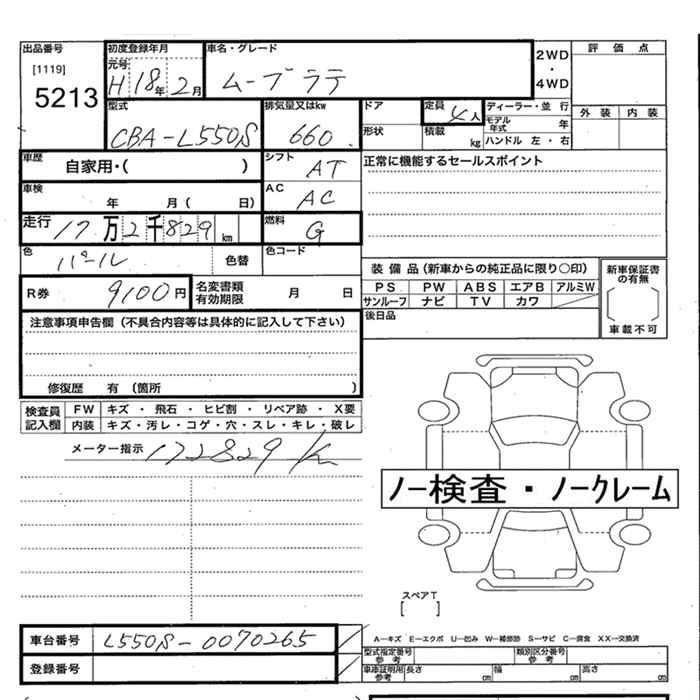 出品番号 初度登録年月 車名・グレード 2WD・4WD 評価点
[1119] 元号 H 18年 2月 ムーブラテ
5213 外装 内装
型式 CBA-L550S 排気量又はkw 660 ドア 定員 4人 ディーラー・並行
形状 積載 kg モデル年式 年
ハンドル 左・右
車歴 自家用・( ) シフト AT 正常に機能するセールスポイント
車検 年 月( 日) AC AC
走行 17万2千829km 燃料 G
色 パール 色替 色コード
装備品(新車からの純正品に限り○印) 新車保証書の有無
R券 9100円 名変書類有効期限 月 日 PS PW ABS エアB アルミW
サンルーフ ナビ TV カワ 車載不可
注意事項申告欄(不具合内容等は具体的に記入して下さい) 後日品
修復歴 有 (箇所 )
検査員記入欄 FW キズ・飛石・ヒビ割・リペア跡・X要
内装 キズ・汚レ・コゲ・穴・スレ・キレ・破レ
メーター指示 172829K
ノー検査・ノークレーム
スペアT
[ ]
車台番号 L550S-0070265 A―キズ E―エクボ U―凹み W―補修跡 S―サビ C―腐食 XX―交換済
型式指定番号 参考 類別区分番号 参考
登録番号 車庫証明用参考 長さ cm 幅 cm 高さ cm